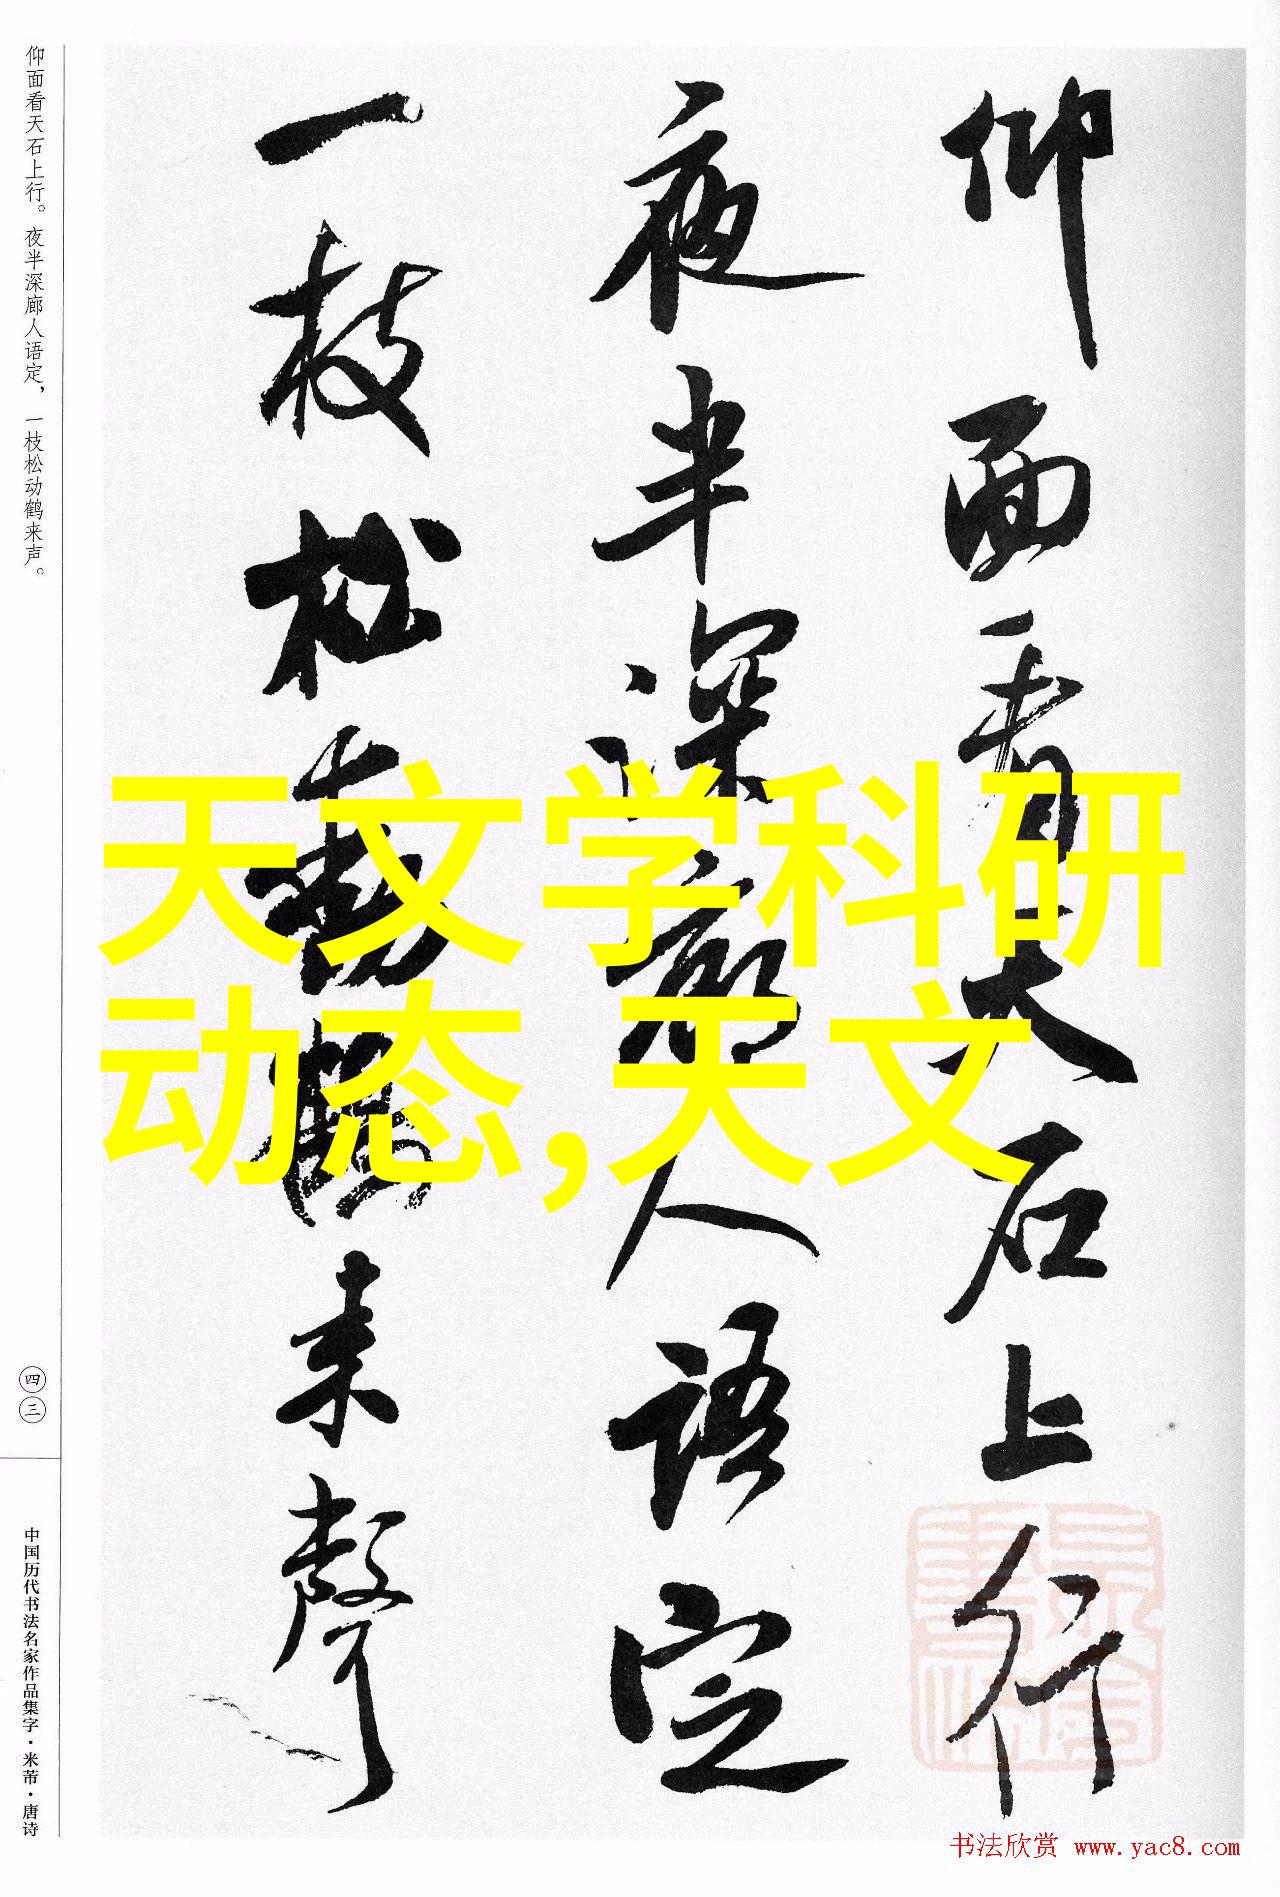 仰面看天石上行
夜半深廊人語定
一枝松動鶴来聲
仰面看天石上行。夜半深廊人语定，一枝松动鹤来声。
四三
中国历代书法名家作品集字·米芾·唐诗
天文学科研
动态,天文
书法欣赏 www.yac8.com